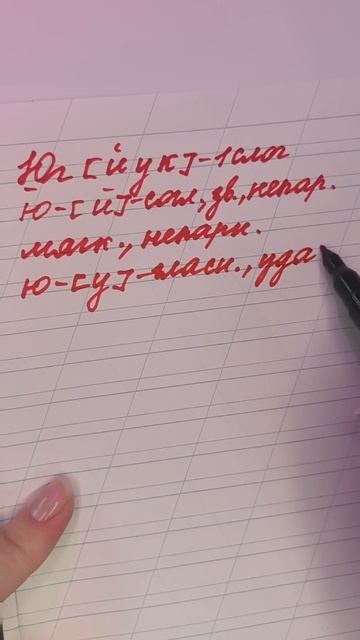 Юг [й у к] - 1 слог
Ю - [й] - согл., зв., непар.
мягк., непарн.
ю - [у] - гласн., уда